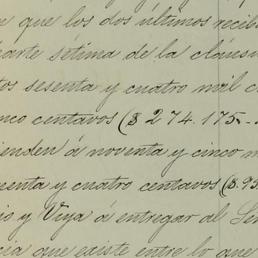 que los dos últimos recib
arte sétima de la cláus
tos sesenta y cuatro mil c
nco centavos ($ 274.175.-
ienden á noventa y cinco m
uenta y cuatro centavos ($.95
is y Viya á entregar al Se
cia que existe entre lo que